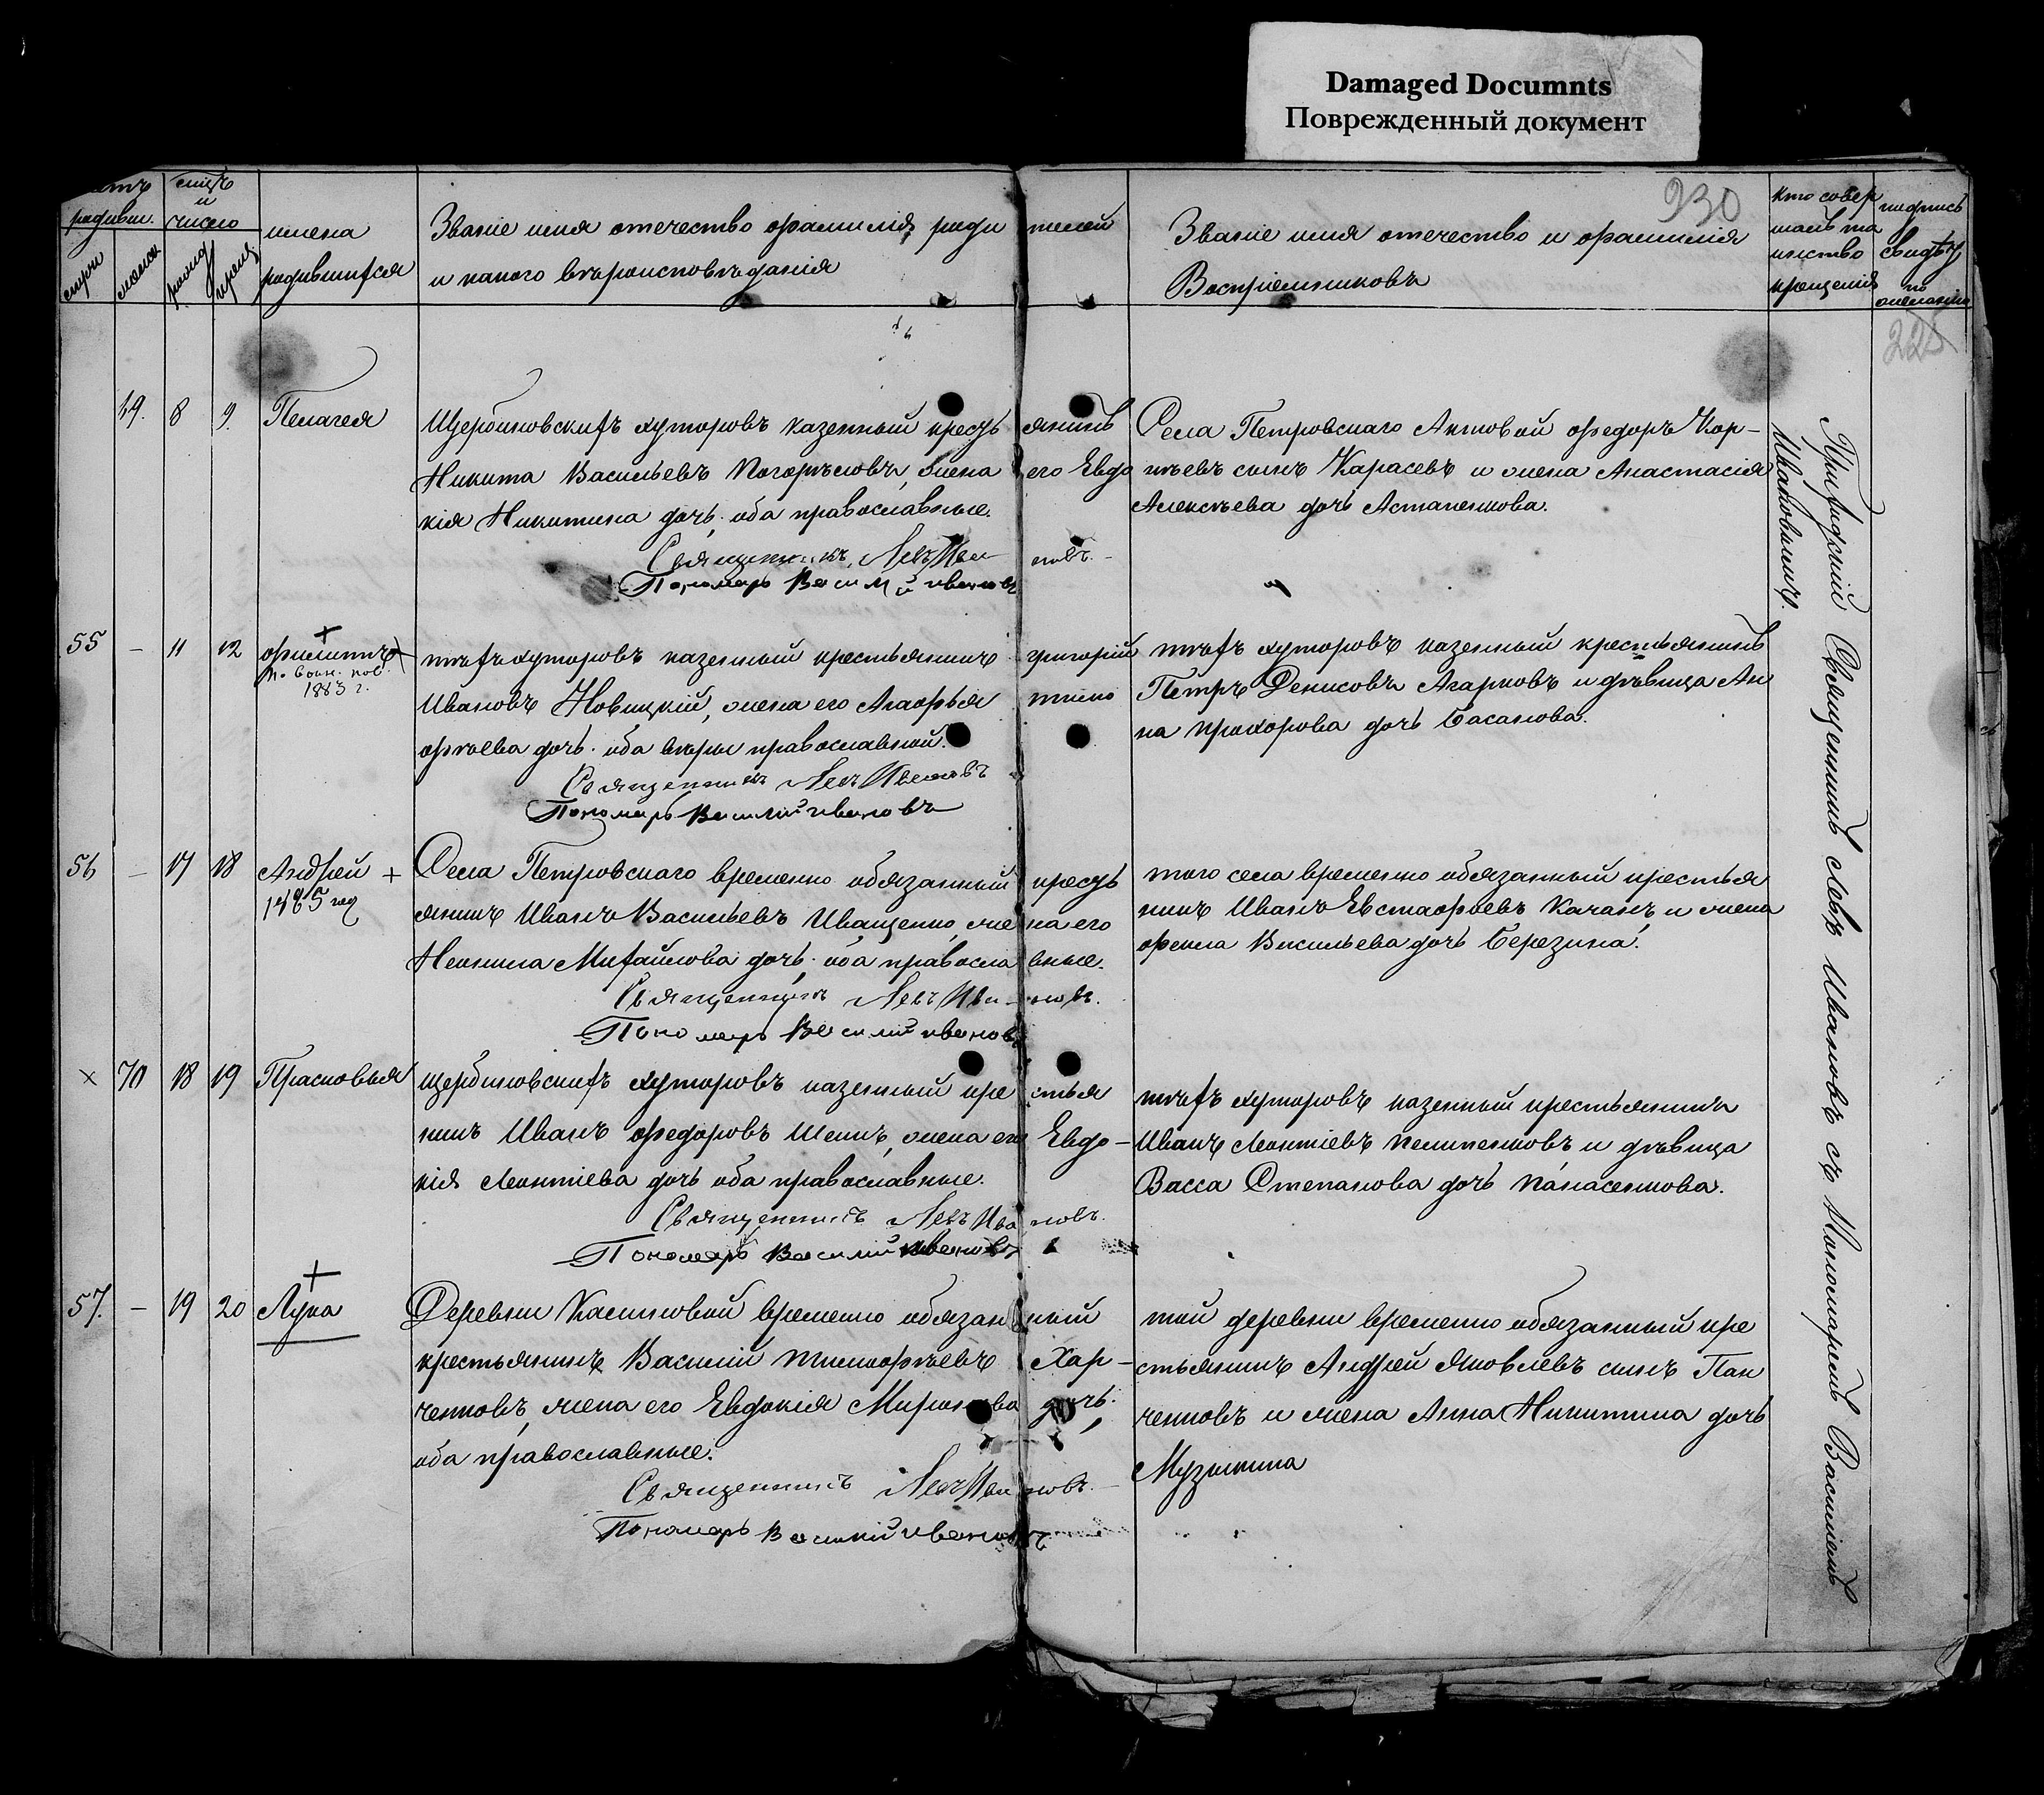 Damaged Documnts
Поврежденный документ
930
родивш. число
и
имена
родившихся
Званіе имя отечество фамилія роди телей
и какого вѣроисповѣданія
Званіе имя отечество и фамилія
Воспріемниковъ
кто совер
шалъ та
инство
крещенія
подпись
свидѣт
по
желанію
225
8 9. Пелагея
Щербиновскихъ хуторовъ казенный кресть янинъ
Никита Васильевъ Погорѣловъ, жена его Евдо
кія Никитина дочь. оба православные.
Священникъ Левъ Ива новъ.
Пономарь Василій Ивановъ
Села Петровскаго Федоръ Кор-
нѣевъ сынъ Карасевъ и жена Анастасія
Алексѣева дочь Астапенкова.
55 – 11 12 Филиппъ
1883 г.
тѣхъ хуторовъ казенный крестьянинъ григорій
Ивановъ Новицкій, жена его Агафья тимо
фѣева дочь. оба вѣры православной.
Священникъ Левъ Ивановъ
Пономарь Василій Ивановъ
тѣхъ хуторовъ казенный крестьянинъ
Петръ Денисовъ Агарковъ и дѣвица Ан
на Прохорова дочь Басанова.
56 – 17 18 Андрей +
1885 год
Села Петровскаго временно обязанный кресть
янинъ Иванъ Васильевъ Иващенко, же на его
Неонила Михайлова дочь. оба правосла вные.
Священникъ Левъ Ива- новъ.
Пономарь Василій Ивановъ
того села временно обязанный крестья
нинъ Иванъ Евстафьевъ Качанъ, и жена
Фекла Васильева дочь Березина.
× 70 18 19 Прасковья
щербиновскихъ хуторовъ казенный кре стья
нинъ Иванъ Федоровъ Шеинъ, жена его Евдо-
кія Леонтіева дочь оба православные.
Священникъ Левъ Ива новъ.
Пономарь Василій Ивановъ
тѣхъ хуторовъ казенный крестьянинъ
Иванъ Леонтіевъ и дѣвица
Васса Степанова дочь Панасенкова.
57. – 19 20 Лука
Деревни Касиновой временно обязан ный
крестьянинъ Василій Тимофѣевъ Хар-
ченковъ, жена его Евдокія Миронова дочь.
оба православные.
Священникъ Левъ Ива новъ.
Пономарь Василій Ивановъ
той деревни временно обязанный кре
стьянинъ Андрей Яковлевъ сынъ Пан
ченковъ и жена Анна Никитина дочь
Музыкина
Приходскій Священникъ Левъ Ивановъ съ Пономаремъ Василіемъ
Ивановымъ.